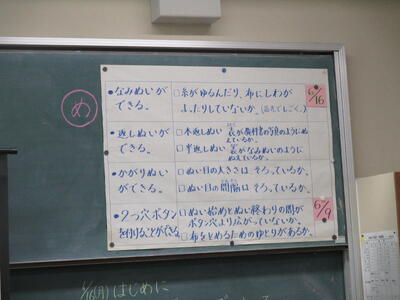 め
●なみぬいができる。
□糸がゆるんだり、布にしわが
よったりしていないか。
6/16
●返しぬいができる。
□本返しぬい 表が教科書の写真のようにぬえているか。
□半返しぬい 表がなみぬいのようにぬえているか。
●かがりぬいができる。
□ぬい目の大きさは そろっているか。
□ぬい目の間隔は そろっているか。
●2つ穴ボタンを付けることができる。
□ぬい始めとぬい終わりの間が
ボタン穴より広がっていないか。
□布をとめるためのゆとりがあるか。
6/9
(月)はじめに